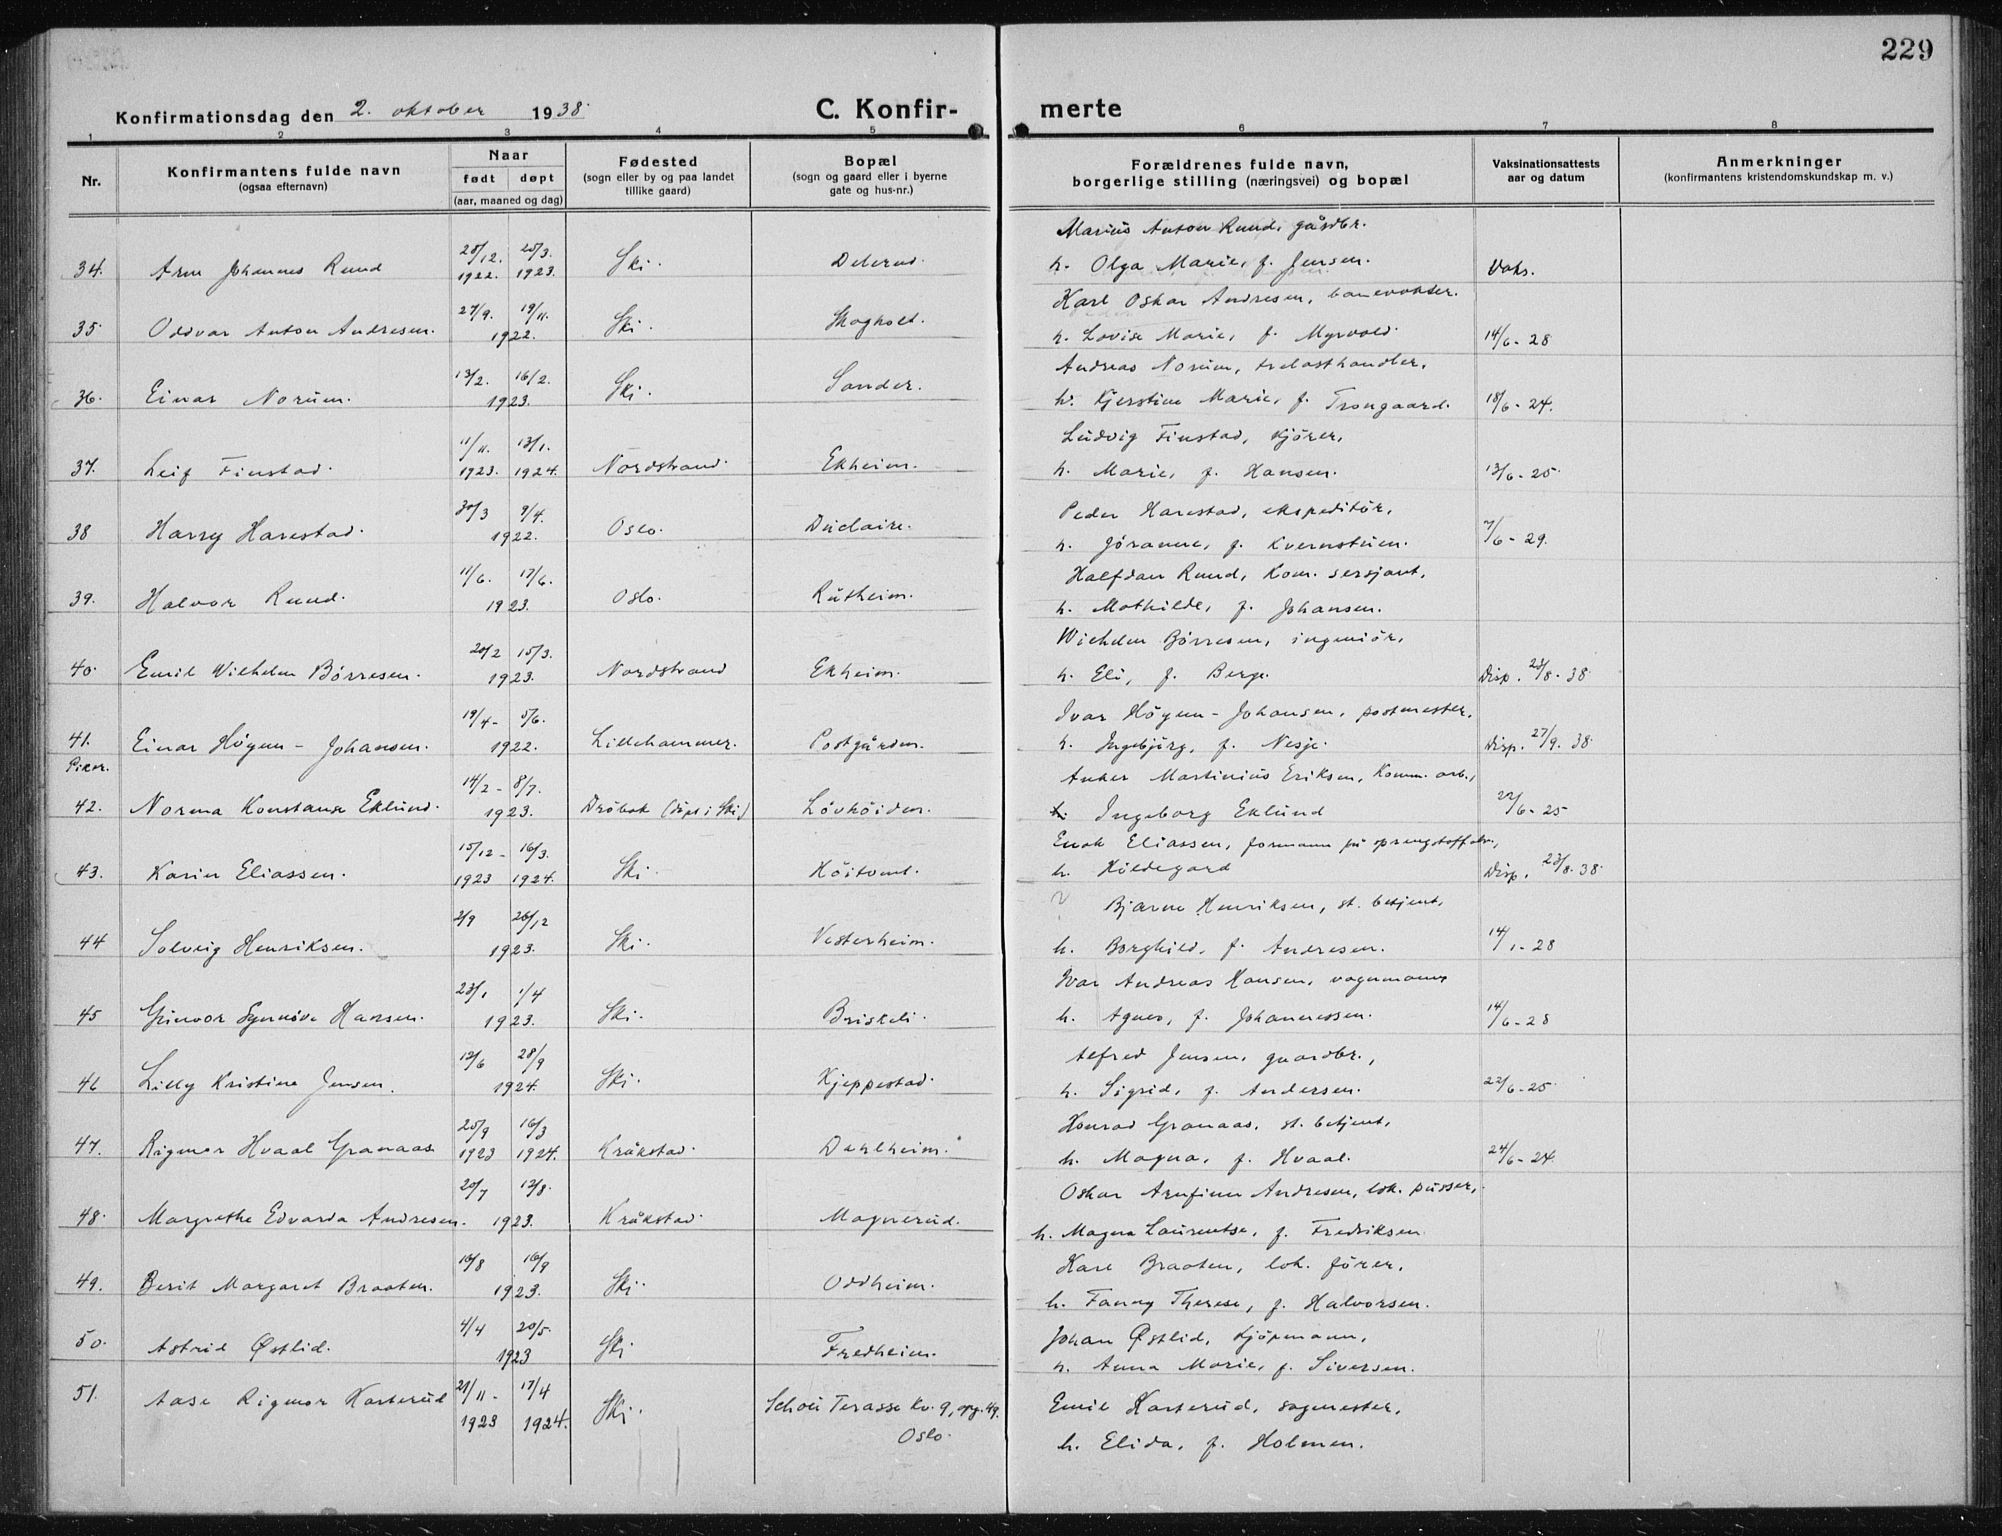 229
Konfirmationsdag den 2. oktober 1938.
C. Konfir- merte
1 2 3 4 5 6 7 8
Nr.
Konfirmantens fulde navn
(ogsaa efternavn)
Naar
født døpt
(aar, maaned og dag)
Fødested
(sogn eller by og paa landet
tillike gaard)
Bopæl
(sogn og gaard eller i byerne
gate og hus-nr.)
Forældrenes fulde navn,
borgerlige stilling (næringsvei) og bopæl
Vaksinationsattests
aar og datum
Anmerkninger
(konfirmantens kristendomskundskap m. v.)
Marius Anton Ruud, gårdbr.
34. Arne Johannes Ruud 28/12. 1922. 25/3. 1923. Ski. h. Olga Marie, f. Jensen. Vaks.
Karl Oskar Andresen, banevokter.
35. Oddvar Anton Andresen. 27/9. 19/11. 1922. Ski. Skogholt. h. Lovise Marie, f. Myrvold. 14/6-28
Andreas Norum, trelasthandler,
36. Einar Norum. 13/2. 16/2. 1923. Ski. Sander. h. Kjerstine Marie, f. Trongaard. 18/6-24.
Ludvig Finstad, kjører,
37. Leif Finstad. 11/11. 1923. 13/1. 1924. Nordstrand. Ekheim. h. Marie, f. Hansen. 13/6-25.
Peder Harestad, ekspeditør,
38 Harry Harestad. 30/3 9/4. 1922. Oslo. h. Jøranne, f. Kvernstuen. 7/6-29.
Halfdan Ruud, kom. sersjant,
39. Halvor Ruud. 11/6. 17/6. 1923. Oslo. Rutheim. h. Mathilde, f. Johansen.
Wilhelm Børresen, ingeniør,
40. Emil Wilhelm Børresen. 20/2 15/3. 1923. Nordstrand Ekheim. h. Eli, f. Berge. Disp. 23/8-38
Ivar Høgun-Johansen, postmester,
41. Einar Høgun-Johansen. 19/4- 5/6. 1922. Lillehammer. Postgården. h. Ingebjørg, f. Nesje. Disp. 27/9. 38
Piker.
Anker Martinius Eriksen, komm. arb.,
42. Norma Konstanse Eklund. 14/2- 8/7. 1923. Drøbak (døpt i Ski) Løvhøiden. h. Ingeborg Eklund 22/6-25
Enok Eliassen, formann på sprengstoffabr.,
43. Karin Eliassen. 15/12- 1923 16/3. 1924. Ski. Høitomt. h. Hildegard Disp. 23/8. 38.
Bjarne Henriksen, st. betjent,
44 Solveig Henriksen. 2/9 26/12 1923. Ski. Vesterheim. h. Borghild, f. Andresen. 14/1-28
Ivar Andreas Hansen, vognmann
45 Gunvor Synnøve Hansen. 23/1 1/4 1923. Ski. Briskeli. h. Agnes, f. Johannessen. 14/6-28
Alfred Jensen, gaardbr.,
46 Lilly Kristine Jensen. 12/6 28/9 1924. Ski. Kjeppestad. h. Sigrid, f. Andersen. 22/6-25.
Konrad Granaas, st. betjent,
47. Rigmor Hvaal Granaas. 25/9 1923 16/3 1924. Kråkstad. Dahlheim. h. Magna, f. Hvaal. 24/6-24.
Oskar Arnfinn Andresen, lok. pusser,
48. Margrethe Edvarda Andresen. 20/7 12/8. 1923. Kråkstad. Magnerud. h. Magna Laurentse, f. Fredriksen.
Karl Braaten, lok. fører,
49. Berit Margaret Braaten. 16/8 16/9 1923. Ski. Oddheim. h. Fanny Therese, f. Halvorsen.
Johan Østlid, kjøpmann,
50. Astrid Østlid. 4/4 20/5. 1923 Ski Fredheim. h. Anna Marie, f. Siversen.
51. Aase Rigmor Karterud 21/11- 1923 17/4 1924. Ski. Schou Terasse kv. 9, opg. 49. Oslo. Emil Karterud, sagmester,
h. Elida, f. Holmen.